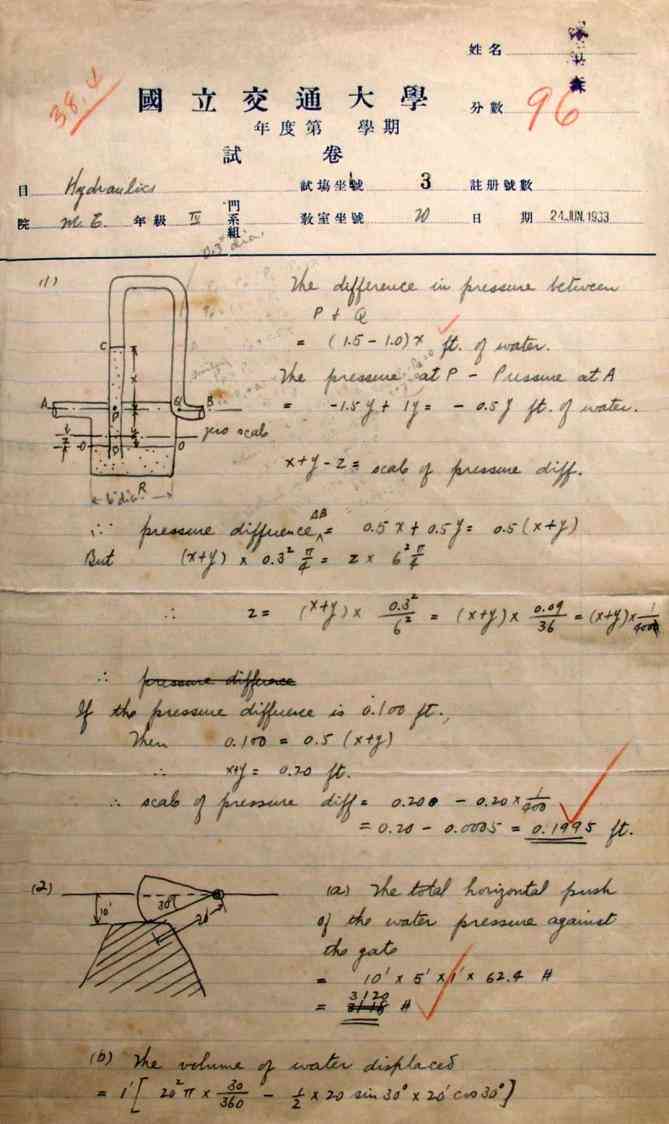 姓名
38.4
國立交通大學
分數 96
年度第 學期
試卷
目 Hydraulics 試場坐號 3 註册號數
院 M.E. 年級 IV 門系組 教室坐號 20 日期 24 JUN. 1933
0.3" dia.
(1)
The difference in pressure between
P & Q
= (1.5 - 1.0) x ft. of water.
The pressure at P - Pressure at A
= -1.5 y + 1 y = - 0.5 y ft. of water.
x+y-z = scale of pressure diff.
C
A
P
Q
B
zero scale
O
D
O
6" dia.
R
∴ pressure difference AB = 0.5 x + 0.5 y = 0.5 (x+y)
But (x+y) × 0.3² π/4 = z × 6² π/4
∴ z = (x+y) × 0.3²/6² = (x+y) × 0.09/36 = (x+y) × 1/400
∴ pressure difference
If the pressure difference is 0.100 ft.,
Then 0.100 = 0.5 (x+y)
∴ x+y = 0.20 ft.
∴ scale of pressure diff = 0.200 - 0.20 × 1/400
= 0.20 - 0.0005 = 0.1995 ft.
(2)
30°
10'
20'
(a) The total horizontal push
of the water pressure against
the gate
= 10' × 5' × 1' × 62.4 #
= 3120 #
(b) The volume of water displaced
= 1' [ 20² π × 30/360 - 1/2 × 20 sin 30° × 20' cos 30° ]